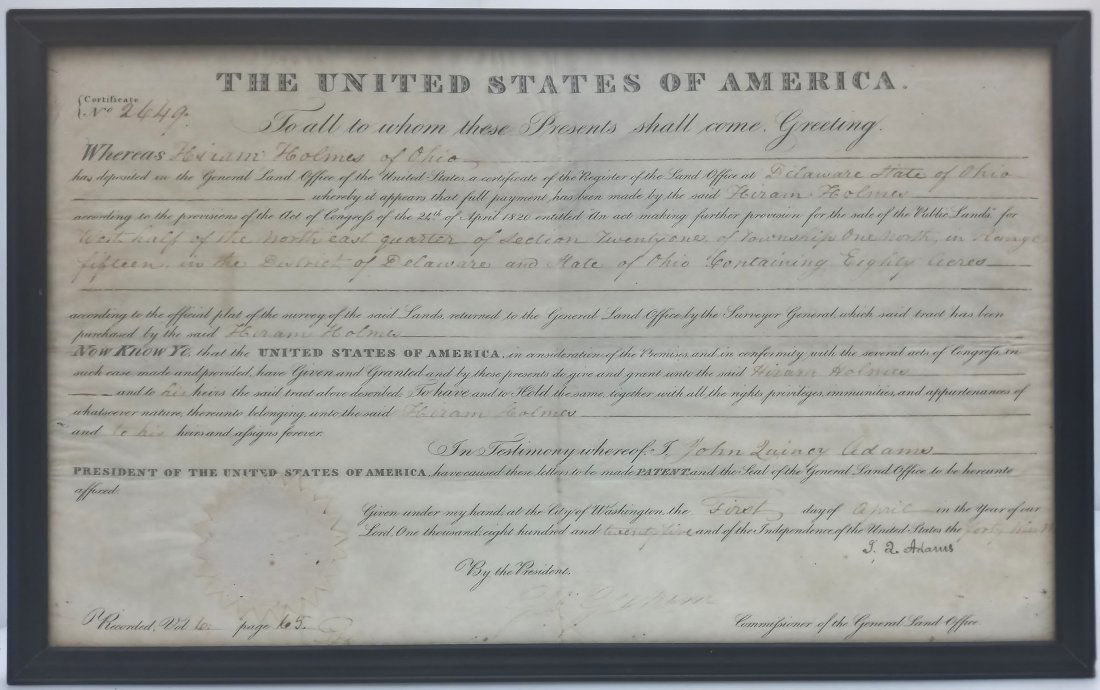 THE UNITED STATES OF AMERICA.
Certificate
No 2649.
To all to whom these Presents shall come, Greeting.
Whereas Hiram Holmes of Ohio
has deposited in the General Land Office of the United States, a certificate of the Register of the Land Office at Delaware State of Ohio
whereby it appears that full payment has been made by the said Hiram Holmes
according to the provisions of the Act of Congress of the 24th of April 1820 entitled "An act making further provision for the sale of the Public Lands," for
West half of the North east quarter of Section Twenty one, of Township One North, in Range
fifteen, in the District of Delaware and State of Ohio Containing Eighty Acres
according to the official plat of the survey of the said Lands, returned to the General Land Office by the Surveyor General, which said tract has been
purchased by the said Hiram Holmes
Now Know Ye, that the UNITED STATES OF AMERICA, in consideration of the Premises, and in conformity with the several acts of Congress, in
such case made and provided, have Given and Granted and by these presents do give and grant unto the said Hiram Holmes
and to his heirs the said tract above described: To have and to Hold the same, together with all the rights, privileges, immunities, and appurtenances of
whatsoever nature, thereunto belonging, unto the said Hiram Holmes
and to his heirs and assigns forever.
In Testimony whereof, I, John Quincy Adams
PRESIDENT OF THE UNITED STATES OF AMERICA, have caused these letters to be made PATENT, and the Seal of the General Land Office to be hereunto
affixed.
Given under my hand, at the City of Washington, the First day of April in the Year of our
Lord, One thousand, eight hundred and twenty five and of the Independence of the United States the forty ninth
J. Q. Adams
By the President.
Graham
Recorded, Vol 6. page 65.
Commissioner of the General Land Office